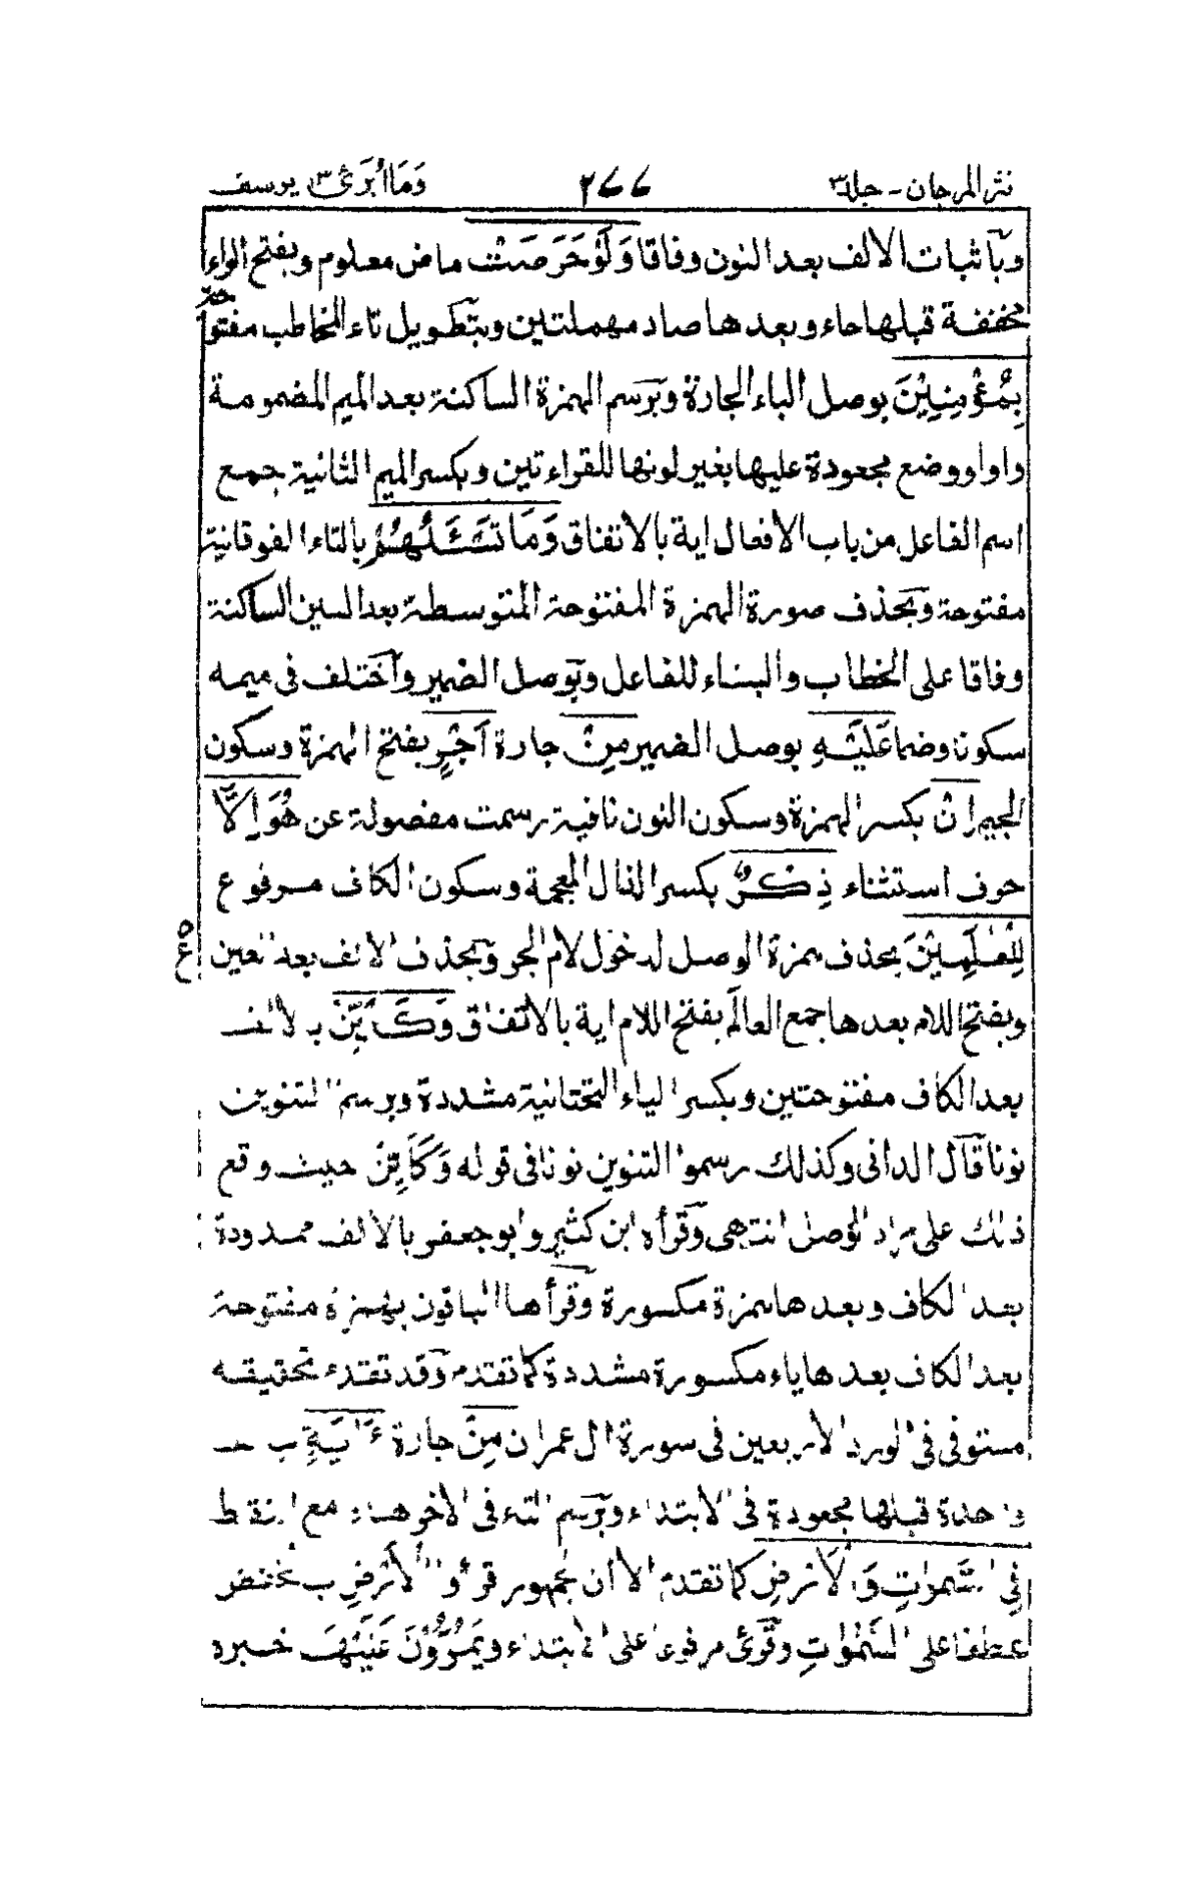 نثر المرجان - جلد ٣ ٢٧٧ وَمَا أُبَرِّئُ ١٣ يوسف
وبآثبات الالف بعد النون وفاقا وَلَوْ حَرَصْتَ ماض معلوم وبفتح الراء
مخففة قبلها حاء وبعدها صاد مهملتين وبتطويل تاء المخاطب مفتوحة
بِمُؤْمِنِيْنَ بوصل الباء الجارة وبرسم الهمزة الساكنة بعد الميم المضمومة
واوا ووضع مجعودة عليها بغير لونها للقراءتين وبكسر الميم الثانية جمع
اسم الفاعل من باب الافعال اية بالاتفاق وَمَا تَسْـَٔلُهُمْ بالتاء الفوقانية
مفتوحة وبحذف صورة الهمزة المفتوحة المتوسطة بعد السين الساكنة
وفاقا على الخطاب والبناء للفاعل وبوصل الضمير واختلف فى ميمه
سكونا وضما عَلَيْهِ بوصل الضمير مِنْ جارة اَجْرٍ بفتح الهمزة وسكون
الجيم اِنْ بكسر الهمزة وسكون النون نافية رسمت مفصولة عن هُوَ اِلَّا
حرف استثناء ذِكْرٌ بكسر الذال المعجمة وسكون الكاف مرفوع
لِلْعٰلَمِيْنَ بحذف همزة الوصل لدخول لام الجر وبحذف الالف بعد العين ع ٥
وبفتح اللام بعدها جمع العالَم بفتح اللام اية بالاتفاق وَكَاَيِّنْ بالالف
بعد الكاف مفتوحتين وبكسر الياء التحتانية مشددة وبرسم التنوين
نونا قال الدانى وكذلك رسموا التنوين نونا فى قوله وَكَاَيِّنْ حيث وقع
ذلك على مراد الوصل انتهى وقرأه ابن كثير وابو جعفر بالالف ممدودة
بعد الكاف وبعدها همزة مكسورة وقرأها الباقون بهمزة مفتوحة
بعد الكاف بعدها ياء مكسورة مشددة كما تقدم وقد تقدم تحقيقه
مستوفى فى الورد الاربعين فى سورة ال عمران مِنْ جارة ءَايَةٍ بالف
واحدة قبلها مجعودة فى الابتداء وبرسم التاء فى الاخر هاء مع النقط
فِى السَّمٰوٰتِ وَالْاَرْضِ كما تقدم الا ان الجمهور قرأوا الْاَرْضِ بالخفض
عطفا على السَّمٰوٰتِ وقرئ مرفوعا على الابتداء ويَمُرُّوْنَ عَلَيْهَا خبره